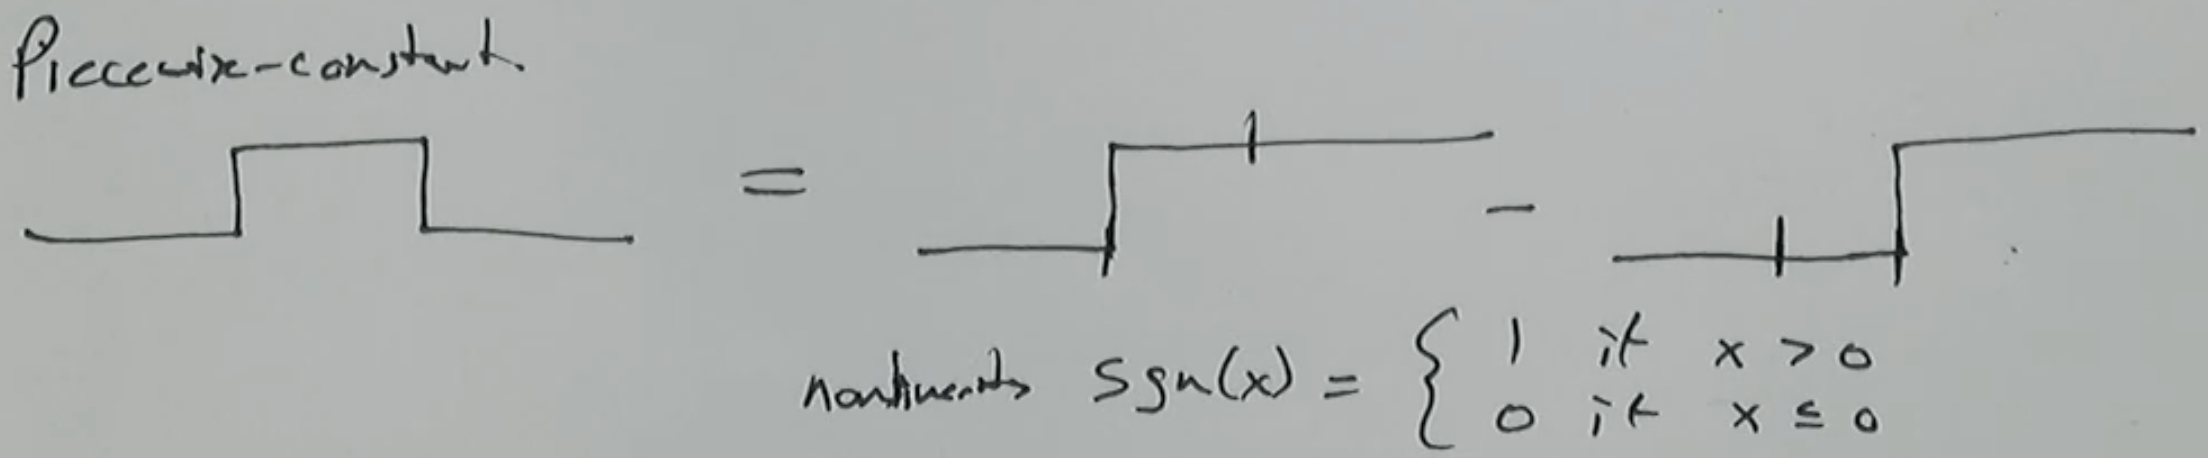 Piecewise-constant.
= -
nonlinearity Sgn(x) = { 1 if x > 0
0 if x ≤ 0